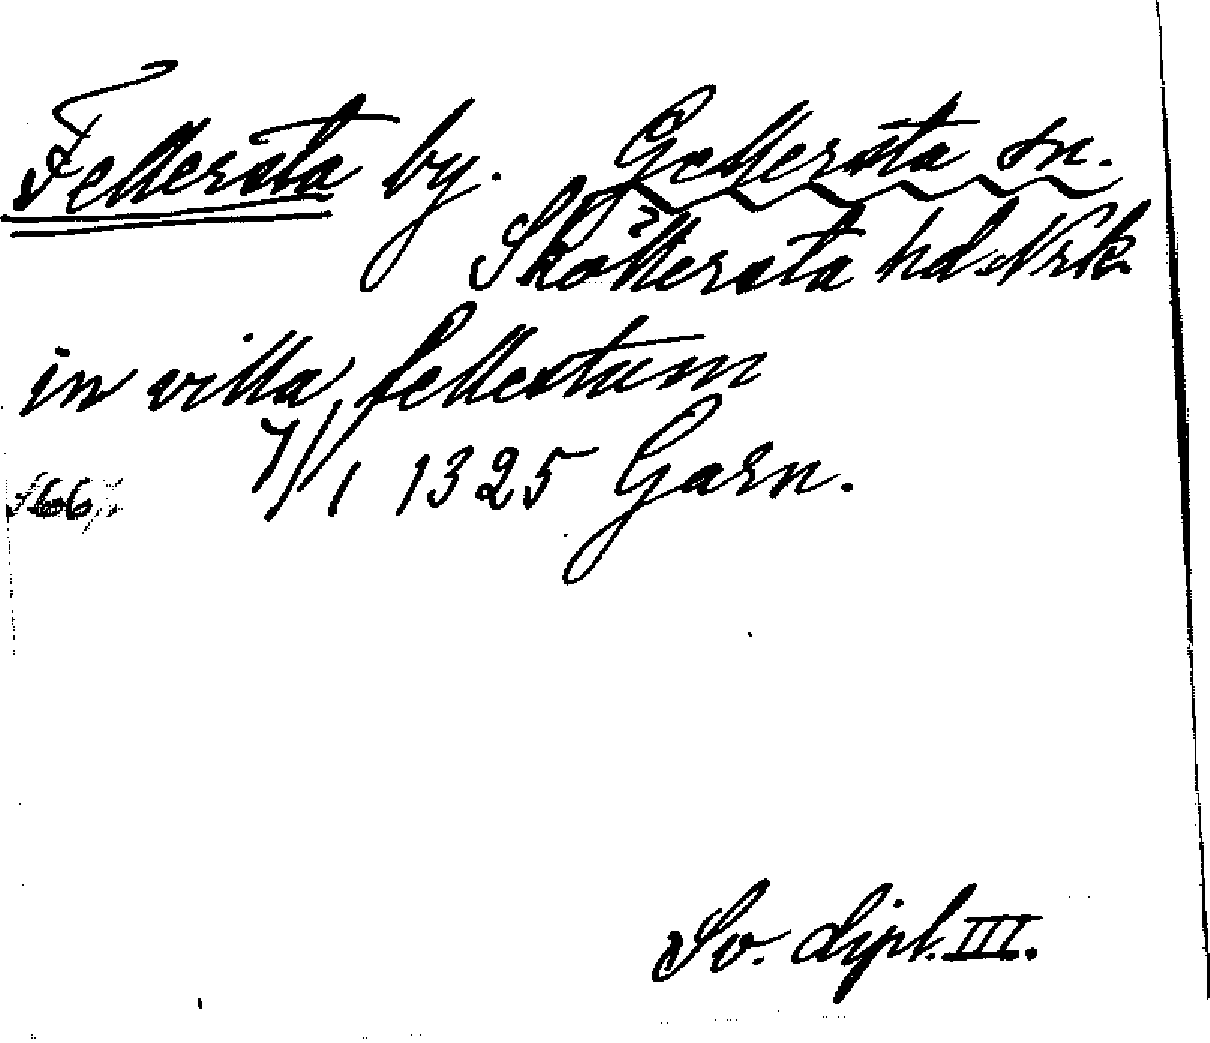 Fellersta by. Gellersta sn.
Skölersta hd. Nrk.
in villa fellestum
7/1 1325 Garn.
S. 667
Sv. dipl. III.